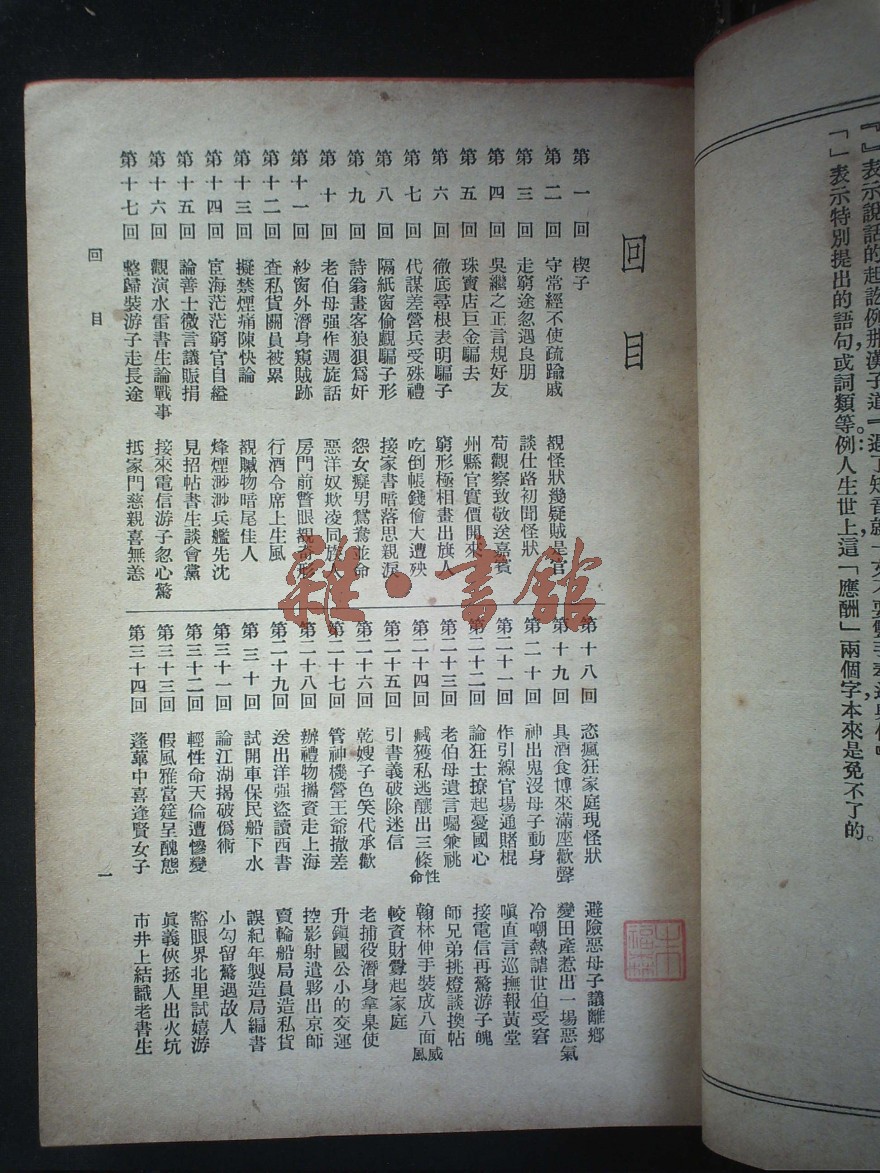 『』表示說話的起訖例那漢子道
「」表示特別提出的語句或詞類等例人生世上這「應酬」兩個字本來是免不了的。
回目
第一回 楔子
第二回 守常經不使疏踰戚 覩怪狀幾疑賊是官
第三回 走窮途忽遇良朋 談仕路初聞怪狀
第四回 吳繼之正言規好友 苟觀察致敬送嘉賓
第五回 珠寶店巨金騙去 州縣官實價開來
第六回 徹底尋根表明騙子 窮形極相畫出旗人
第七回 代謀差營兵受殊禮 吃倒帳錢儈大遭殃
第八回 隔紙窗偷覷騙子形 接家書暗落思親淚
第九回 詩翁畫客狼狽為奸 怨女癡男鴛鴦並命
第十回 老伯母强作週旋話 惡洋奴欺凌同族人
第十一回 紗窗外潛身窺賊跡 房門前瞥眼覩奇形
第十二回 查私貨關員被累 行酒令席上生風
第十三回 擬禁煙痛陳快論 覩贓物暗尾佳人
第十四回 宦海茫茫窮官自縊 烽煙渺渺兵艦先沈
第十五回 論善士微言議賑捐 見招帖書生談會黨
第十六回 觀演水雷書生論戰事 接來電信游子忽心驚
第十七回 整歸裝游子走長途 抵家門慈親喜無恙
第十八回 恣瘋狂家庭現怪狀 避險惡母子議離鄉
第十九回 具酒食博來滿座歡聲 變田產惹出一場惡氣
第二十回 神出鬼沒母子動身 冷嘲熱謔世伯受窘
第二十一回 作引線官場通賭棍 嗔直言巡撫報黃堂
第二十二回 論狂士撩起憂國心 接電信再驚游子魄
第二十三回 老伯母遺言囑兼祧 師兄弟挑燈談換帖
第二十四回 臧獲私逃釀出三條性命 翰林伸手裝成八面威風
第二十五回 引書義破除迷信 較資財釁起家庭
第二十六回 乾嫂子色笑代承歡 老捕役潛身拿臬使
第二十七回 管神機營王爺撤差 升鎮國公小的交運
第二十八回 辦禮物攜資走上海 控影射遣夥出京師
第二十九回 送出洋强盜讀西書 賣輪船局員造私貨
第三十回 試開車保民船下水 誤紀年製造局編書
第三十一回 論江湖揭破偽術 小勾留驚遇故人
第三十二回 輕性命天倫遭慘變 豁眼界北里試嬉游
第三十三回 假風雅當筵呈醜態 眞義俠拯人出火坑
第三十四回 蓬蓽中喜逢賢女子 市井上結識老書生
回目
一
雜·書館